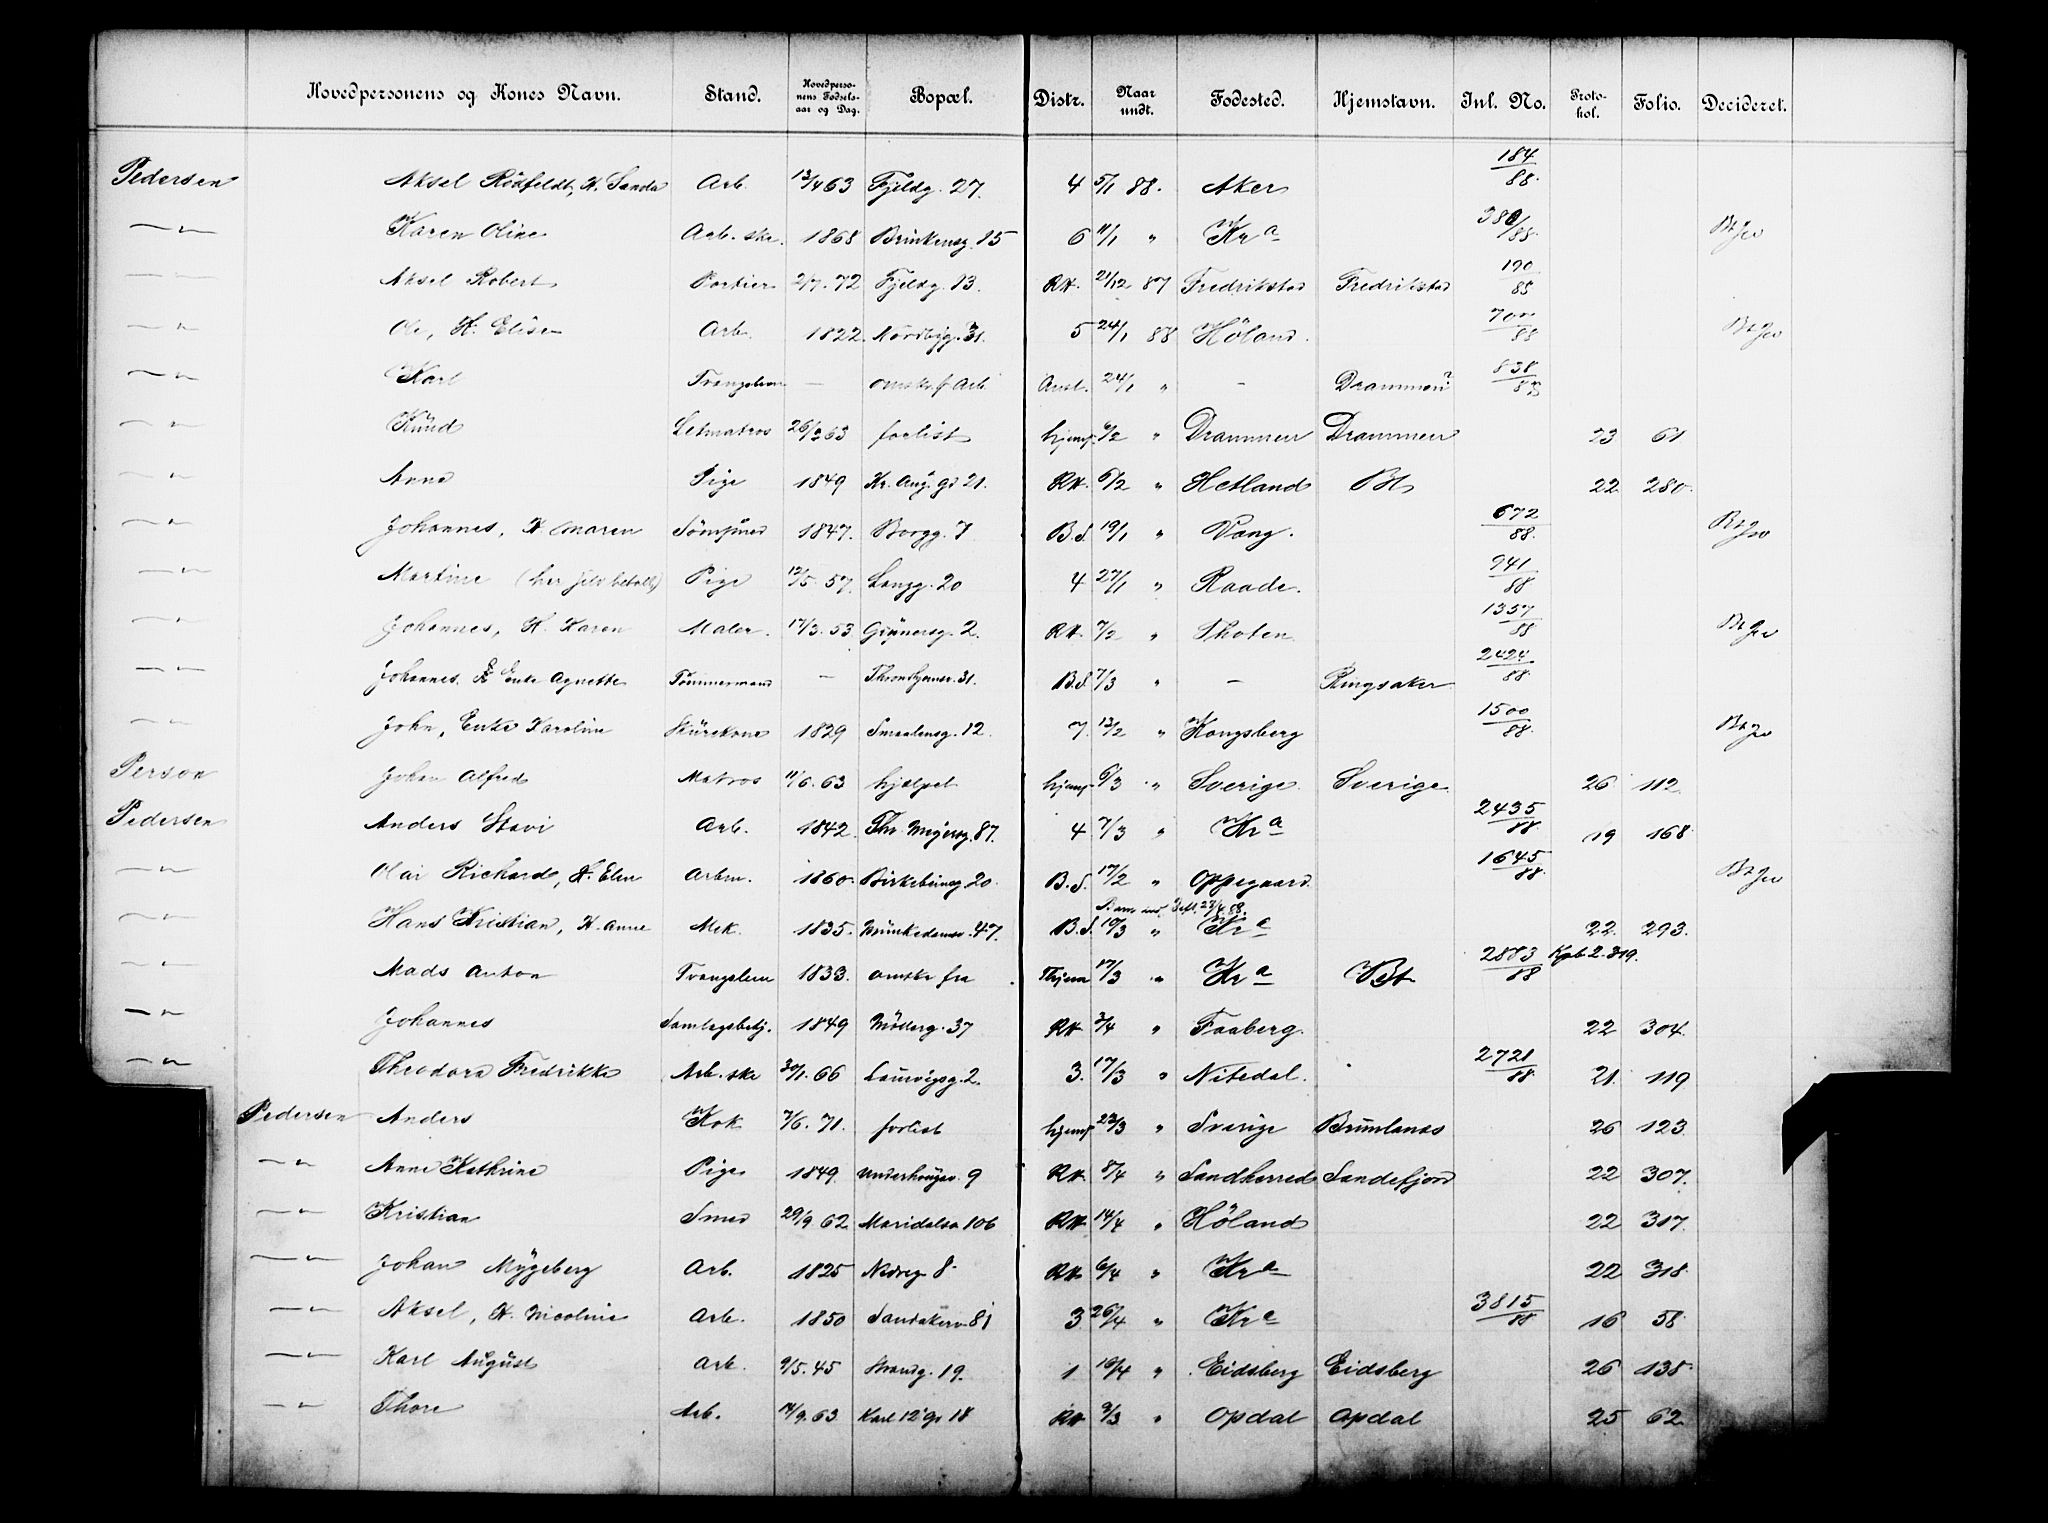 Hovedpersonens og Kones Navn. Stand. Hovedpersonens Fødselsaar og Dag. Bopæl. Distr. Naar undt. Fødested. Hjemstavn. Inl. No. Protokol. Folio. Decideret.
Pedersen Aksel Rödfeldt, H. Sanda Arb. 13/4 63 Fjeldg. 27. 4 5/1 88. Aker 184/88.
—"— Karen Oline Arb. ske. 1868 Brinkensg. 15 6 11/1 " Kra 380/88.
—"— Aksel Robert Portier 2/7. 72 Fjeldg. 13. RH. 21/12 87 Fredrikstad Fredrikstad 190/88
—"— Ole, H. Elise Arb. 1822. Nordbyg. 31. 5 24/1 88 Höland. 700/88
—"— Karl Tvangslem — omsk. f. Arb. Anst. 24/1 " — Drammen? 838/88
—"— Knüd Letmatros 26/3 63 forlist hjemf. 6/2 " Drammen Drammen 23 61
—"— Anna Pige 1849 Kr. Aug. gd 21. RH. 6/2 " Hetland 22 280.
—"— Johannes, H Maren 1847. Borgg. 7 B.S. 19/1 " Vang. 672/88.
—"— Martine (har selv betalt) Pige 12/5. 57. Langg. 20 4 27/1 " Raade. 941/88
—"— Johannes, H. Karen Maler. 17/3. 53 Grünersg. 2. RH. 7/2 " Thoten 1357/88
—"— Johannes. Enke Agnette Tømmermand — Throndhjemsv. 31. B.S. 7/3 " — Ringsaker 2424/88.
—"— John, Enke Karoline Skürekone 1829 Smaalensg. 12. 7. 13/2 " Kongsberg 1500/88.
Person Johan Alfred Matros 11/6. 63 hjælpet hjemf. 6/3 " Sverige. Sverige. 26 112.
Pedersen Anders Stavi Arb. 1842. Thv. Meyersg. 87. 4 7/3 " Kra 2435/88 19 168
—"— Olai Richard, H. Elen Arbm. 1860. Birkebeinerg. 20. B.S. 17/2 " Oppegaard. 1645/88
—"— Hans Kristian, H. Anne Mek. 1835. Münkedamsv. 47. B.S. 10/3 " Kra 22. 293.
—"— Mads Anton Tvangslem 1833. omsk. fra Thjem 17/3 " Kra 2883/88 Kpb 2. 319.
—"— Johannes Samlagsbetj. 1849 Möllerg. 37 RH. 3/4 " Faaberg. 22 304.
—"— Theodora Fredrikke Arb. ske 30/1. 66 Laurvigsg. 2. 3. 17/3 " Nitedal. 2721/88 21. 119
Pedersen Anders Kok 7/6. 71. forlist hjemf. 22/3 " Sverige Brunlanæs 26 123.
—"— Anne Kathrine Pige 1849. Underhaugsv. 9 RH. 8/4 " Sandherred Sandefjord 22 307.
—"— Kristian Smed 29/9 62 Maridalsv. 106 RH. 14/4 " Höland 22 317.
—"— Johan Mÿgeberg Arb. 1825 Nedreg. 8. RH. 6/4 " Kra 22 318.
—"— Aksel, H. Nicoline Arb. 1850 Sandakerv. 81 3 26/4 " Kra 3815/88 16 58.
—"— Karl August Arb. 9/5. 45 Strandg. 19. 1 16/4 " Eidsberg Eidsberg 26 138.
—"— Thore Arb. 14/9. 63 Karl 12' gd 18 RH 3/3 " Opdal Opdal 25 62.